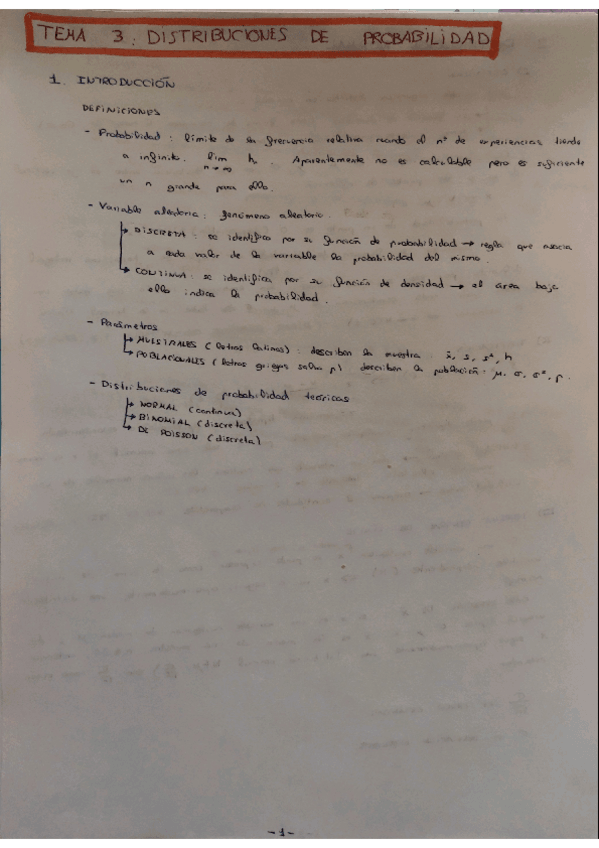 TEMA 3: DISTRIBUCIONES DE PROBABILIDAD
1. INTRODUCCIÓN
DEFINICIONES
- Probabilidad: límite de su frecuencia relativa cuando el nº de experiencias tiende
a infinito. lim h. Aparentemente no es calculable pero es suficiente
n→∞
un n grande para ello.
- Variable aleatoria: fenómeno aleatorio.
↳ DISCRETA: se identifica por su función de probabilidad → regla que asocia
a cada valor de la variable la probabilidad del mismo.
↳ CONTINUA: se identifica por su función de densidad → el área bajo
ella indica la probabilidad.
- Parámetros
↳ MUESTRALES (letras latinas): describen la muestra: x̄, s, s², h
↳ POBLACIONALES (letras griegas salvo p): describen la población: μ, σ, σ², p.
- Distribuciones de probabilidad teóricas
↳ NORMAL (continua)
↳ BINOMIAL (discreta)
↳ DE POISSON (discreta)
-1-